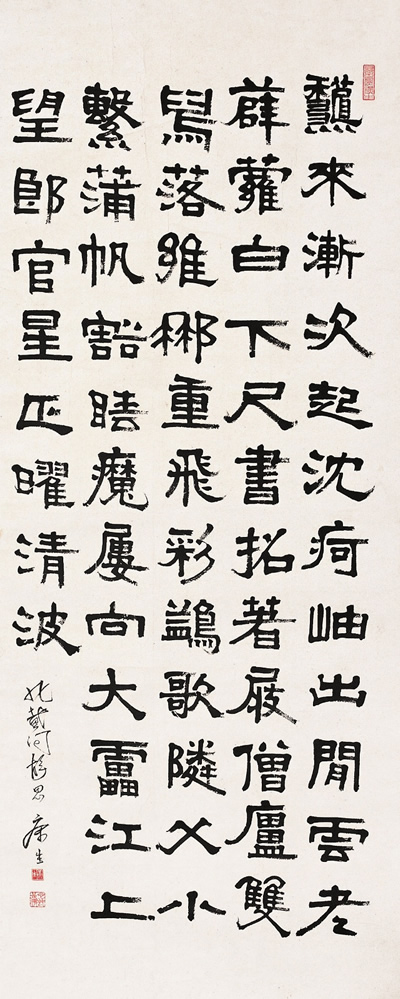 來漸次起沈疴岫出閒雲老
薜蘿白下尺書招著屐僧廬雙
舄落維重飛彩鷁歌隣父小
繫蒲帆豁睛魔屢向大靁江上
望郎官星正曜清波
北戴河 康生